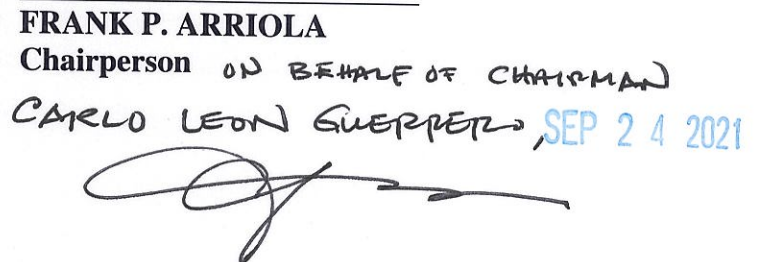 FRANK P. ARRIOLA
Chairperson ON BEHALF OF CHAIRMAN
CARLO LEON GUERRERO, SEP 24 2021